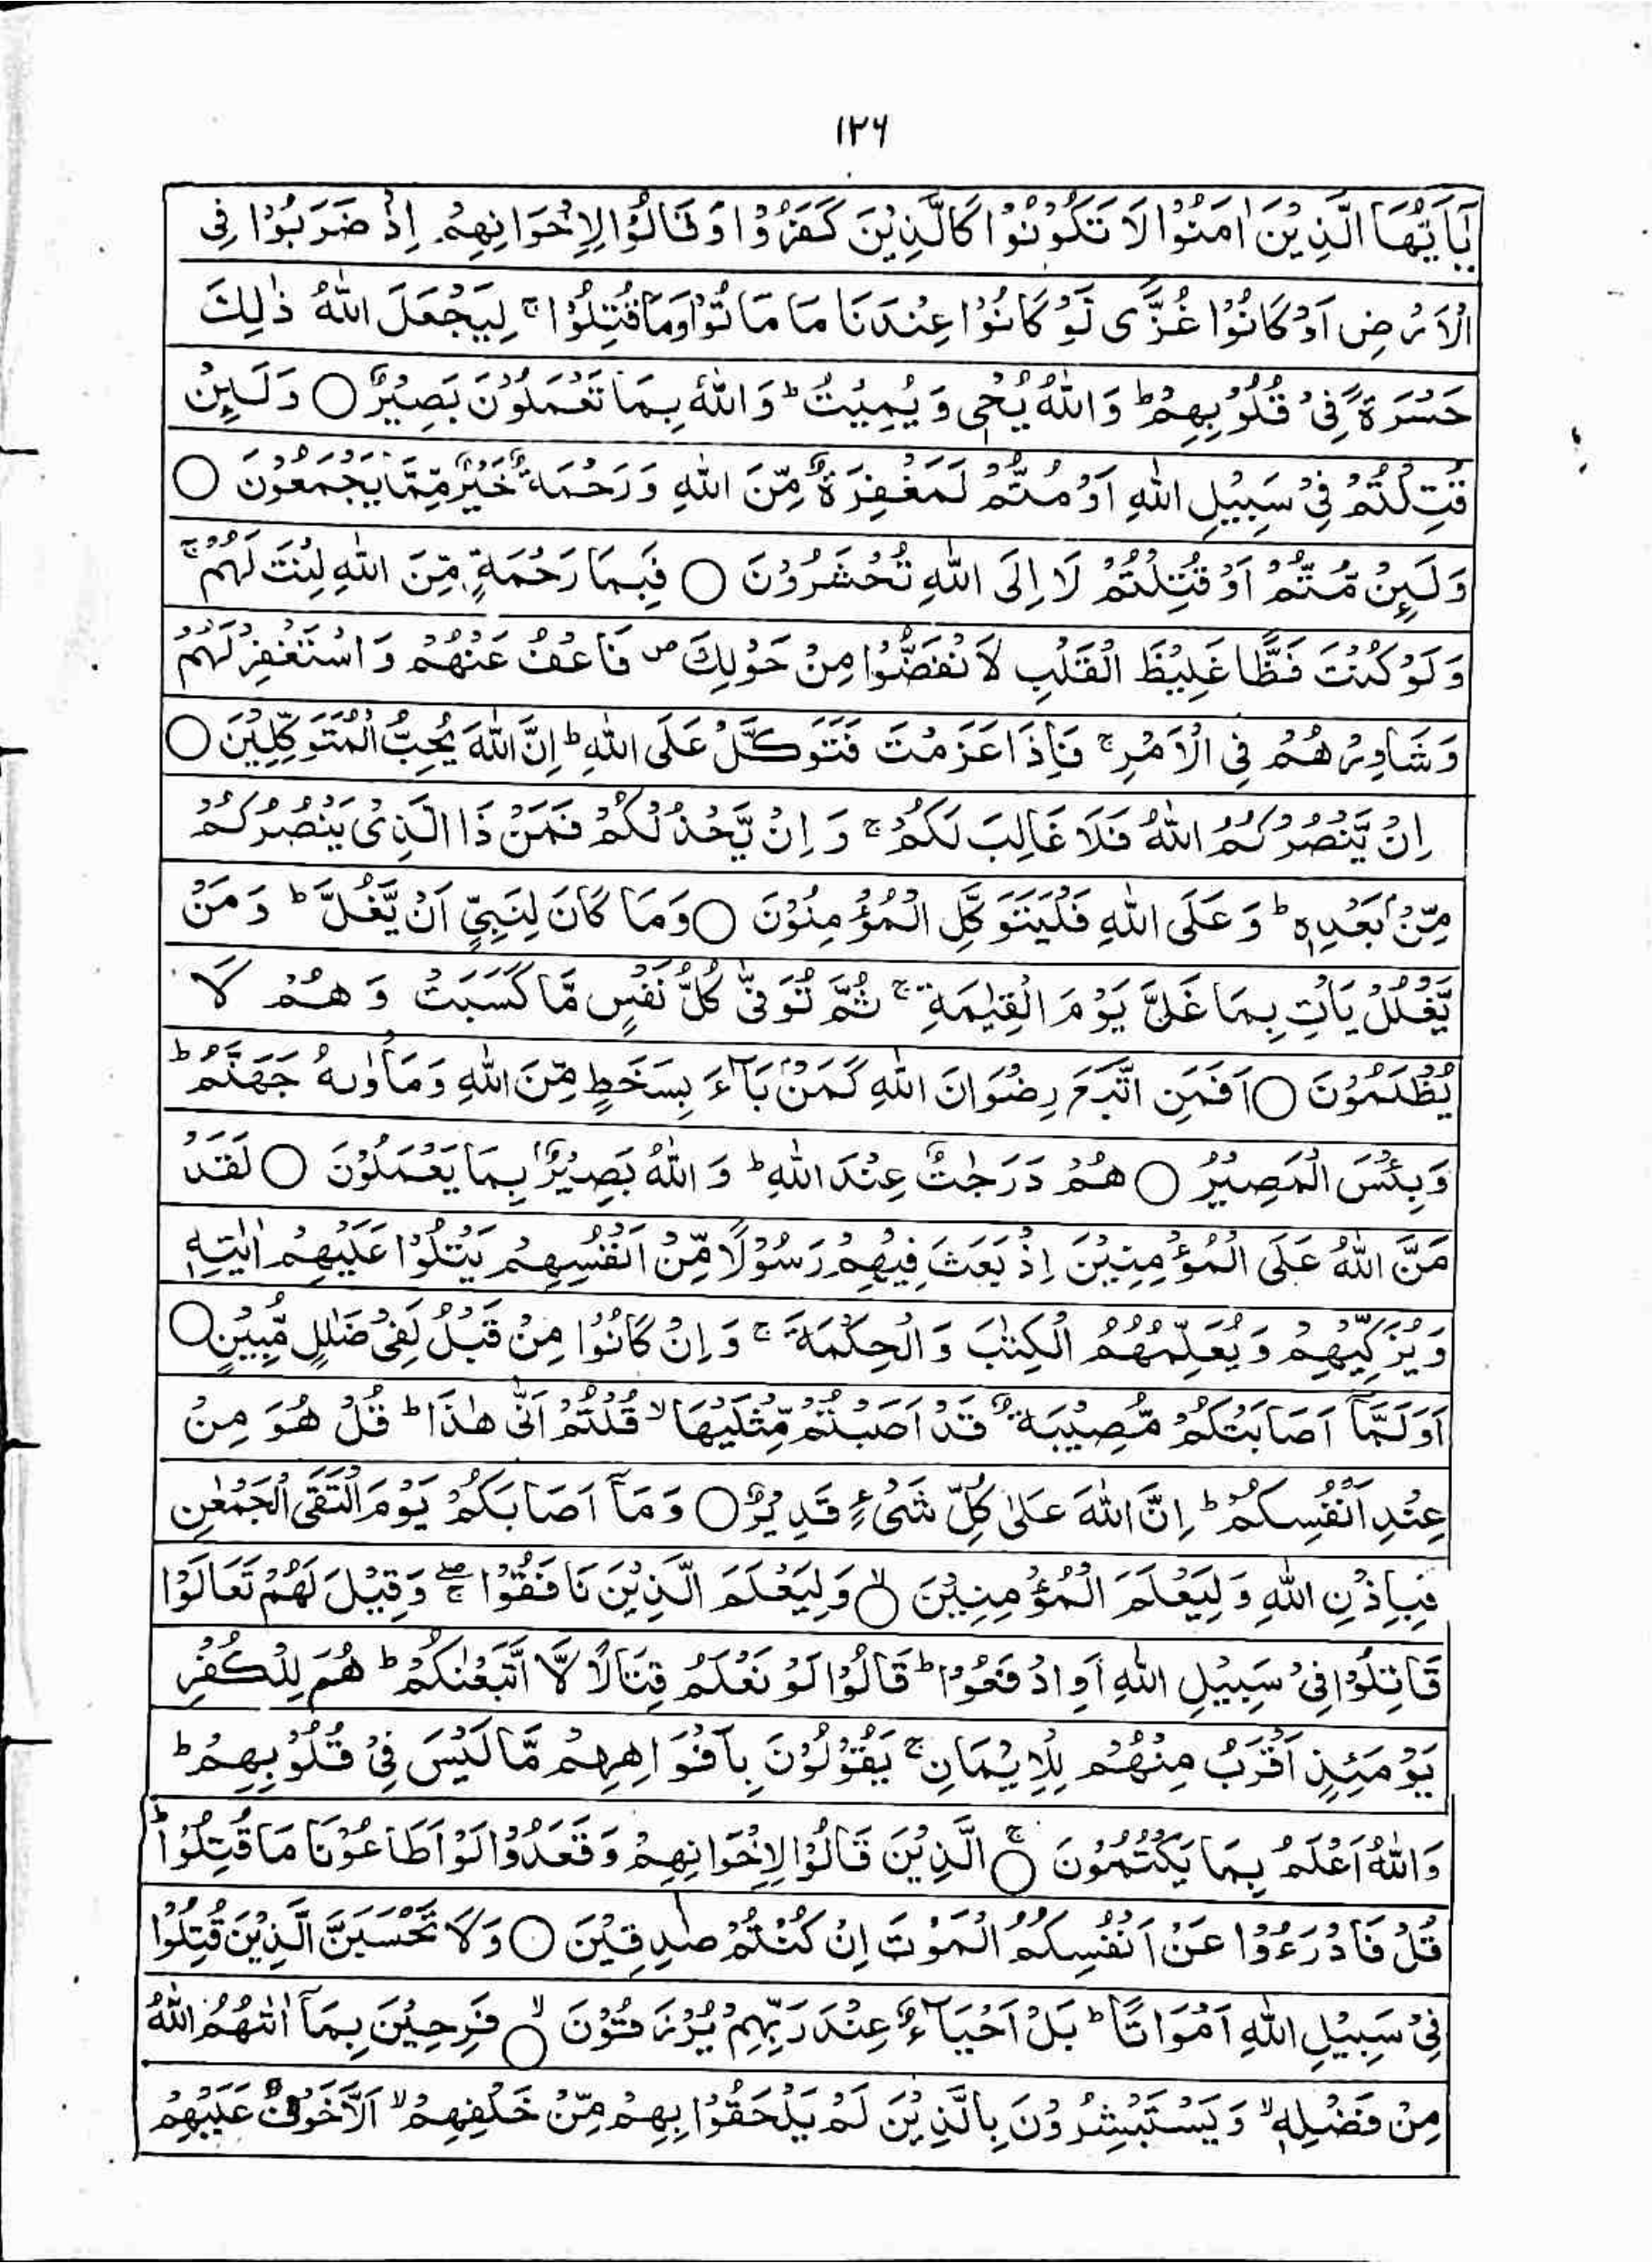 ۱۲۶
يٰٓاَيُّهَا الَّذِيْنَ اٰمَنُوْا لَا تَكُوْنُوْا كَالَّذِيْنَ كَفَرُوْا وَقَالُوْا لِاِخْوَانِهِمْ اِذَا ضَرَبُوْا فِى
الْاَرْضِ اَوْ كَانُوْا غُزًّى لَّوْ كَانُوْا عِنْدَنَا مَا مَاتُوْا وَمَا قُتِلُوْا ۚ لِيَجْعَلَ اللّٰهُ ذٰلِكَ
حَسْرَةً فِىْ قُلُوْبِهِمْ ؕ وَاللّٰهُ يُحْىٖ وَيُمِيْتُ ؕ وَاللّٰهُ بِمَا تَعْمَلُوْنَ بَصِيْرٌ ○ وَلَئِنْ
قُتِلْتُمْ فِىْ سَبِيْلِ اللّٰهِ اَوْ مُتُّمْ لَمَغْفِرَةٌ مِّنَ اللّٰهِ وَرَحْمَةٌ خَيْرٌ مِّمَّا يَجْمَعُوْنَ ○
وَلَئِنْ مُّتُّمْ اَوْ قُتِلْتُمْ لَا اِلَى اللّٰهِ تُحْشَرُوْنَ ○ فَبِمَا رَحْمَةٍ مِّنَ اللّٰهِ لِنْتَ لَهُمْ ۚ
وَلَوْ كُنْتَ فَظًّا غَلِيْظَ الْقَلْبِ لَانْفَضُّوْا مِنْ حَوْلِكَ ص فَاعْفُ عَنْهُمْ وَاسْتَغْفِرْ لَهُمْ
وَشَاوِرْهُمْ فِى الْاَمْرِ ۚ فَاِذَا عَزَمْتَ فَتَوَكَّلْ عَلَى اللّٰهِ ؕ اِنَّ اللّٰهَ يُحِبُّ الْمُتَوَكِّلِيْنَ ○
اِنْ يَّنْصُرْكُمُ اللّٰهُ فَلَا غَالِبَ لَكُمْ ۚ وَاِنْ يَّخْذُلْكُمْ فَمَنْ ذَا الَّذِىْ يَنْصُرُكُمْ
مِّنْۢ بَعْدِهٖ ؕ وَعَلَى اللّٰهِ فَلْيَتَوَكَّلِ الْمُؤْمِنُوْنَ ○ وَمَا كَانَ لِنَبِىٍّ اَنْ يَّغُلَّ ؕ وَمَنْ
يَّغْلُلْ يَاْتِ بِمَا غَلَّ يَوْمَ الْقِيٰمَةِ ۚ ثُمَّ تُوَفّٰى كُلُّ نَفْسٍ مَّا كَسَبَتْ وَهُمْ لَا
يُظْلَمُوْنَ ○ اَفَمَنِ اتَّبَعَ رِضْوَانَ اللّٰهِ كَمَنْۢ بَآءَ بِسَخَطٍ مِّنَ اللّٰهِ وَمَاْوٰىهُ جَهَنَّمُ ؕ
وَبِئْسَ الْمَصِيْرُ ○ هُمْ دَرَجٰتٌ عِنْدَ اللّٰهِ ؕ وَاللّٰهُ بَصِيْرٌۢ بِمَا يَعْمَلُوْنَ ○ لَقَدْ
مَنَّ اللّٰهُ عَلَى الْمُؤْمِنِيْنَ اِذْ بَعَثَ فِيْهِمْ رَسُوْلًا مِّنْ اَنْفُسِهِمْ يَتْلُوْا عَلَيْهِمْ اٰيٰتِهٖ
وَيُزَكِّيْهِمْ وَيُعَلِّمُهُمُ الْكِتٰبَ وَالْحِكْمَةَ ۚ وَاِنْ كَانُوْا مِنْ قَبْلُ لَفِىْ ضَلٰلٍ مُّبِيْنٍ ○
اَوَلَمَّآ اَصَابَتْكُمْ مُّصِيْبَةٌ قَدْ اَصَبْتُمْ مِّثْلَيْهَا ۙ قُلْتُمْ اَنّٰى هٰذَا ؕ قُلْ هُوَ مِنْ
عِنْدِ اَنْفُسِكُمْ ؕ اِنَّ اللّٰهَ عَلٰى كُلِّ شَىْءٍ قَدِيْرٌ ○ وَمَآ اَصَابَكُمْ يَوْمَ الْتَقَى الْجَمْعٰنِ
فَبِاِذْنِ اللّٰهِ وَلِيَعْلَمَ الْمُؤْمِنِيْنَ ○ۙ وَلِيَعْلَمَ الَّذِيْنَ نَافَقُوْا ۖۚ وَقِيْلَ لَهُمْ تَعَالَوْا
قَاتِلُوْا فِىْ سَبِيْلِ اللّٰهِ اَوِ ادْفَعُوْا ؕ قَالُوْا لَوْ نَعْلَمُ قِتَالًا لَّا اتَّبَعْنٰكُمْ ؕ هُمْ لِلْكُفْرِ
يَوْمَئِذٍ اَقْرَبُ مِنْهُمْ لِلْاِيْمَانِ ۚ يَقُوْلُوْنَ بِاَفْوَاهِهِمْ مَّا لَيْسَ فِىْ قُلُوْبِهِمْ ؕ
وَاللّٰهُ اَعْلَمُ بِمَا يَكْتُمُوْنَ ○ۚ اَلَّذِيْنَ قَالُوْا لِاِخْوَانِهِمْ وَقَعَدُوْا لَوْ اَطَاعُوْنَا مَا قُتِلُوْا ؕ
قُلْ فَادْرَءُوْا عَنْ اَنْفُسِكُمُ الْمَوْتَ اِنْ كُنْتُمْ صٰدِقِيْنَ ○ وَلَا تَحْسَبَنَّ الَّذِيْنَ قُتِلُوْا
فِىْ سَبِيْلِ اللّٰهِ اَمْوَاتًا ؕ بَلْ اَحْيَآءٌ عِنْدَ رَبِّهِمْ يُرْزَقُوْنَ ○ۙ فَرِحِيْنَ بِمَآ اٰتٰهُمُ اللّٰهُ
مِنْ فَضْلِهٖ ۙ وَيَسْتَبْشِرُوْنَ بِالَّذِيْنَ لَمْ يَلْحَقُوْا بِهِمْ مِّنْ خَلْفِهِمْ ۙ اَلَّا خَوْفٌ عَلَيْهِمْ